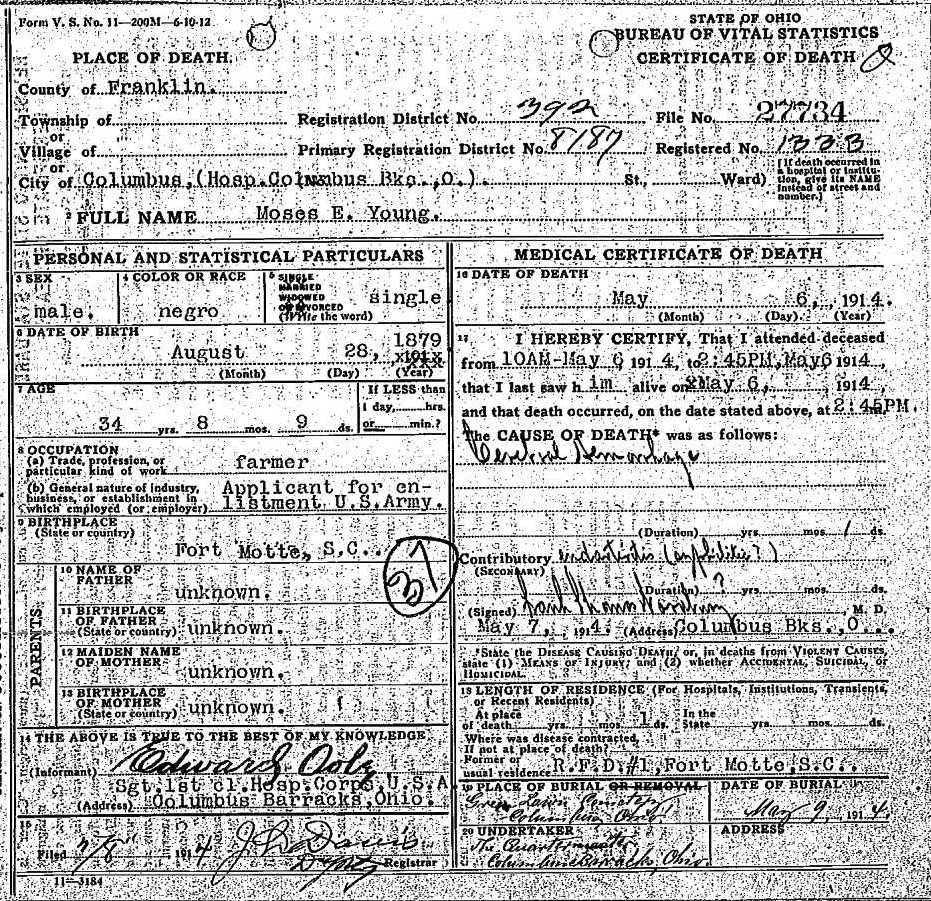 Form V. S. No. 11—200M—6-10-12
STATE OF OHIO
BUREAU OF VITAL STATISTICS
CERTIFICATE OF DEATH
PLACE OF DEATH.
County of Franklin.
Township of
or
Village of
or
City of Columbus,(Hosp.Columbus Bks.,O.). St., Ward)
Registration District No. 392 File No. 27734
Primary Registration District No. 8187 Registered No. 1333
[If death occurred in
a hospital or institu-
tion, give its NAME
instead of street and
number.]
2 FULL NAME Moses E. Young.
PERSONAL AND STATISTICAL PARTICULARS
3 SEX
male.
4 COLOR OR RACE
negro
5 SINGLE
MARRIED
WIDOWED
OR DIVORCED
(Write the word)
single
6 DATE OF BIRTH
1879
August 28, x191xx
(Month) (Day) (Year)
7 AGE
34 yrs. 8 mos. 9 ds.
If LESS than
1 day, hrs.
or min.?
8 OCCUPATION
(a) Trade, profession, or
particular kind of work farmer
(b) General nature of industry,
business, or establishment in
which employed (or employer)
Applicant for en-
listment U.S.Army.
9 BIRTHPLACE
(State or country)
Fort Motte, S.C..
PARENTS
10 NAME OF
FATHER
unknown.
11 BIRTHPLACE
OF FATHER
(State or country) unknown.
12 MAIDEN NAME
OF MOTHER
unknown.
13 BIRTHPLACE
OF MOTHER
(State or country) unknown.
14 THE ABOVE IS TRUE TO THE BEST OF MY KNOWLEDGE
(Informant) Edward
Sgt.1st cl.Hosp.Corps,U.S.A
(Address) Columbus Barracks,Ohio.
15
Filed 1914 J. L. Davis
Registrar
11—3184
MEDICAL CERTIFICATE OF DEATH
16 DATE OF DEATH
May 6, 1914.
(Month) (Day) (Year)
17 I HEREBY CERTIFY, That I attended deceased
from 10AM-May 6 1914, to 2:45PM,May6 1914
that I last saw him alive on May 6, 1914,
and that death occurred, on the date stated above, at 2:45PM.
The CAUSE OF DEATH* was as follows:
Cerebral Hemorrhage
(Duration) yrs. mos. 1 ds.
Contributory (syphilitic?)
(SECONDARY)
(Duration) ? yrs. mos. ds.
(Signed) M. D.
May 7, 1914. (Address) Columbus Bks.,O...
*State the DISEASE CAUSING DEATH; or, in deaths from VIOLENT CAUSES,
state (1) MEANS OF INJURY; and (2) whether ACCIDENTAL, SUICIDAL, or
HOMICIDAL.
18 LENGTH OF RESIDENCE (For Hospitals, Institutions, Transients,
or Recent Residents)
At place
of death yrs. mos. 1 ds.
In the
State yrs. mos. ds.
Where was disease contracted,
If not at place of death?
Former or
usual residence R.F.D.#1,Fort Motte,S.C..
19 PLACE OF BURIAL OR REMOVAL
Green Lawn Cemetery
Columbus Ohio
DATE OF BURIAL
May 9, 1914.
20 UNDERTAKER
The Quartermaster
Columbus Barracks Ohio.
ADDRESS